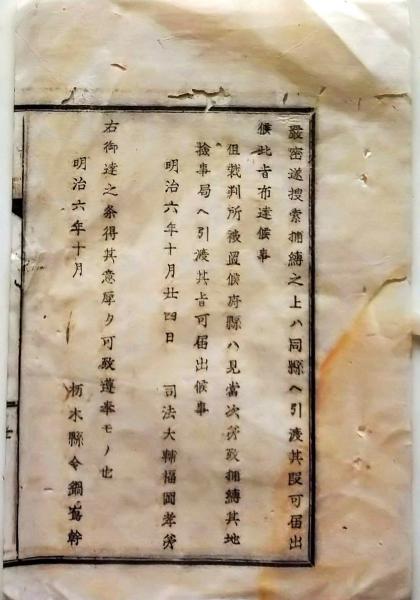 嚴密遂搜索捕縛之上ハ同縣ヘ引渡其段可届出
候此旨布達候事
但裁判所被置候府縣ハ見當次第致捕縛其地
撿事局ヘ引渡其旨可届出候事
明治六年十月廿四日 司法大輔福岡孝弟
右御達之条得其意屹度可致遵奉モノ也
明治六年十月 栃木縣令鍋島幹